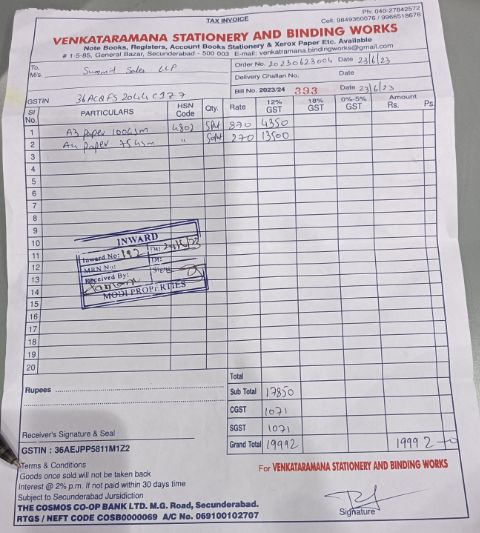 TAX INVOICE
Ph: 040-27842572
Cell: 9849360076 / 9966518678
VENKATARAMANA STATIONERY AND BINDING WORKS
Note Books, Registers, Account Books Stationery & Xerox Paper Etc. Available
# 1-5-85, General Bazar, Secunderabad - 500 003 E-mail: venkatramana.bindingworks@gmail.com
To,
M/s. Summit Sales LLP
Order No. 20230623004 Date 23/6/23
Delivery Challan No. Date
GSTIN 36ACQFS2044C1Z7
Bill No. 2023/24 393 Date 23/6/23
Sl No. PARTICULARS HSN Code Qty. Rate 12% GST 18% GST 0%-5% GST Amount Rs. Ps.
1 A3 Paper 100GSM 4802 5Pkt 870 4350
2 A4 Paper 75GSM " 50Pkt 270 13500
3
4
5
6
7
8
9
10
11
12
13
14
15
16
17
18
19
20
INWARD
Inward No: 192 Dt:
MRN No: Dt:
Received By: Sign:
MODI PROPERTIES
Total
Rupees
Sub Total 17850
CGST 1071
SGST 1071
Grand Total 19992 19992
Receiver's Signature & Seal
GSTIN : 36AEJPP5811M1Z2
Terms & Conditions
Goods once sold will not be taken back
Interest @ 2% p.m. if not paid within 30 days time
Subject to Secunderabad Jursidiction
THE COSMOS CO-OP BANK LTD. M.G. Road, Secunderabad.
RTGS / NEFT CODE COSB0000069 A/C No. 069100102707
For VENKATARAMANA STATIONERY AND BINDING WORKS
Signature